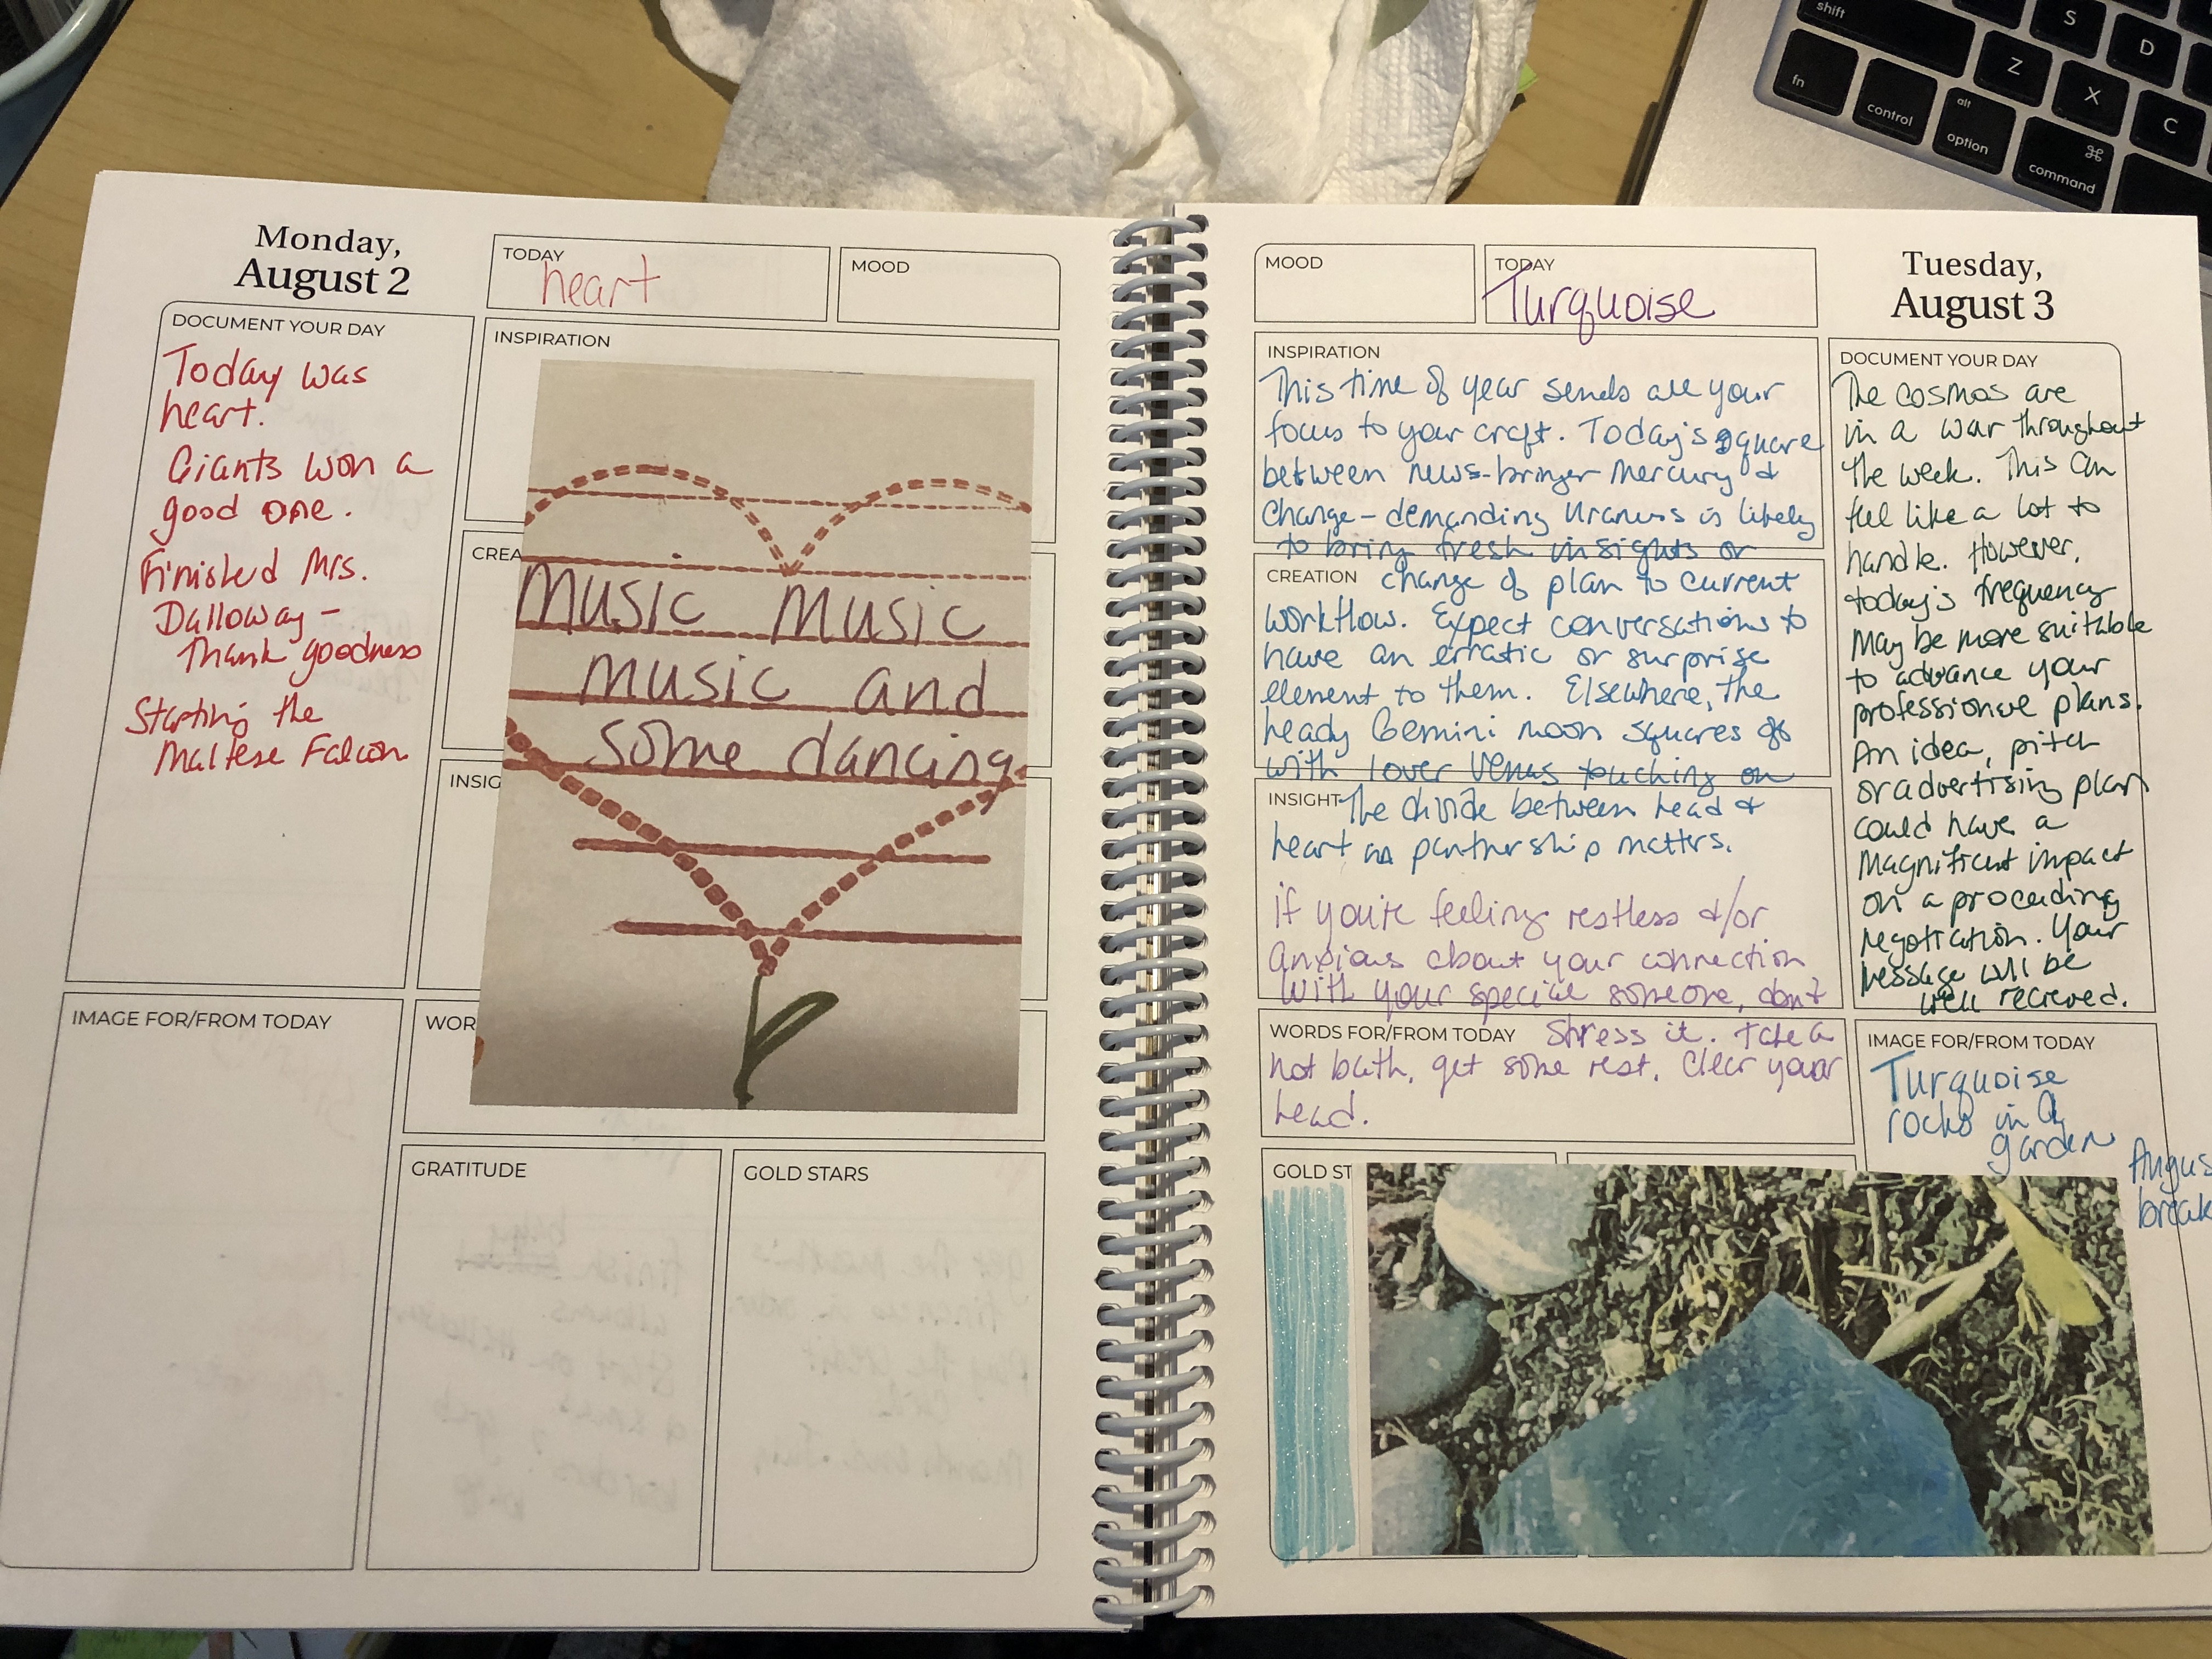 shift
S
D
Z
X
C
fn
control
alt
option
⌘
command
Monday,
August 2
TODAY
heart
MOOD
DOCUMENT YOUR DAY
Today was
heart.
Giants won a
good one.
Finished Mrs.
Dalloway –
Thank goodness
Starting the
Maltese Falcon
INSPIRATION
CREA
INSIG
WOR
Music Music
music and
some dancing
IMAGE FOR/FROM TODAY
GRATITUDE
GOLD STARS
MOOD
TODAY
Turquoise
Tuesday,
August 3
INSPIRATION
This time of year sends all your
focus to your craft. Today's square
between news-bringer Mercury &
Change-demanding Uranus is likely
to bring fresh insights or
CREATION change of plan to current
workflow. Expect conversations to
have an erratic or surprise
element to them. Elsewhere, the
heady Gemini moon squares off
with lover Venus touching on
INSIGHT The divide between head &
heart partnership matters.
if you're feeling restless &/or
anxious about your connection
with your special someone, don't
WORDS FOR/FROM TODAY stress it. Take a
hot bath, get some rest. Clear your
head.
GOLD ST
DOCUMENT YOUR DAY
The cosmos are
in a war throughout
the week. This can
feel like a lot to
handle. However,
today's frequency
may be more suitable
to advance your
professional plans.
An idea, pitch
or advertising plan
could have a
magnificent impact
on a proceeding
negotiation. Your
message will be
well recieved.
IMAGE FOR/FROM TODAY
Turquoise
rocks in a
garden
Angus
break